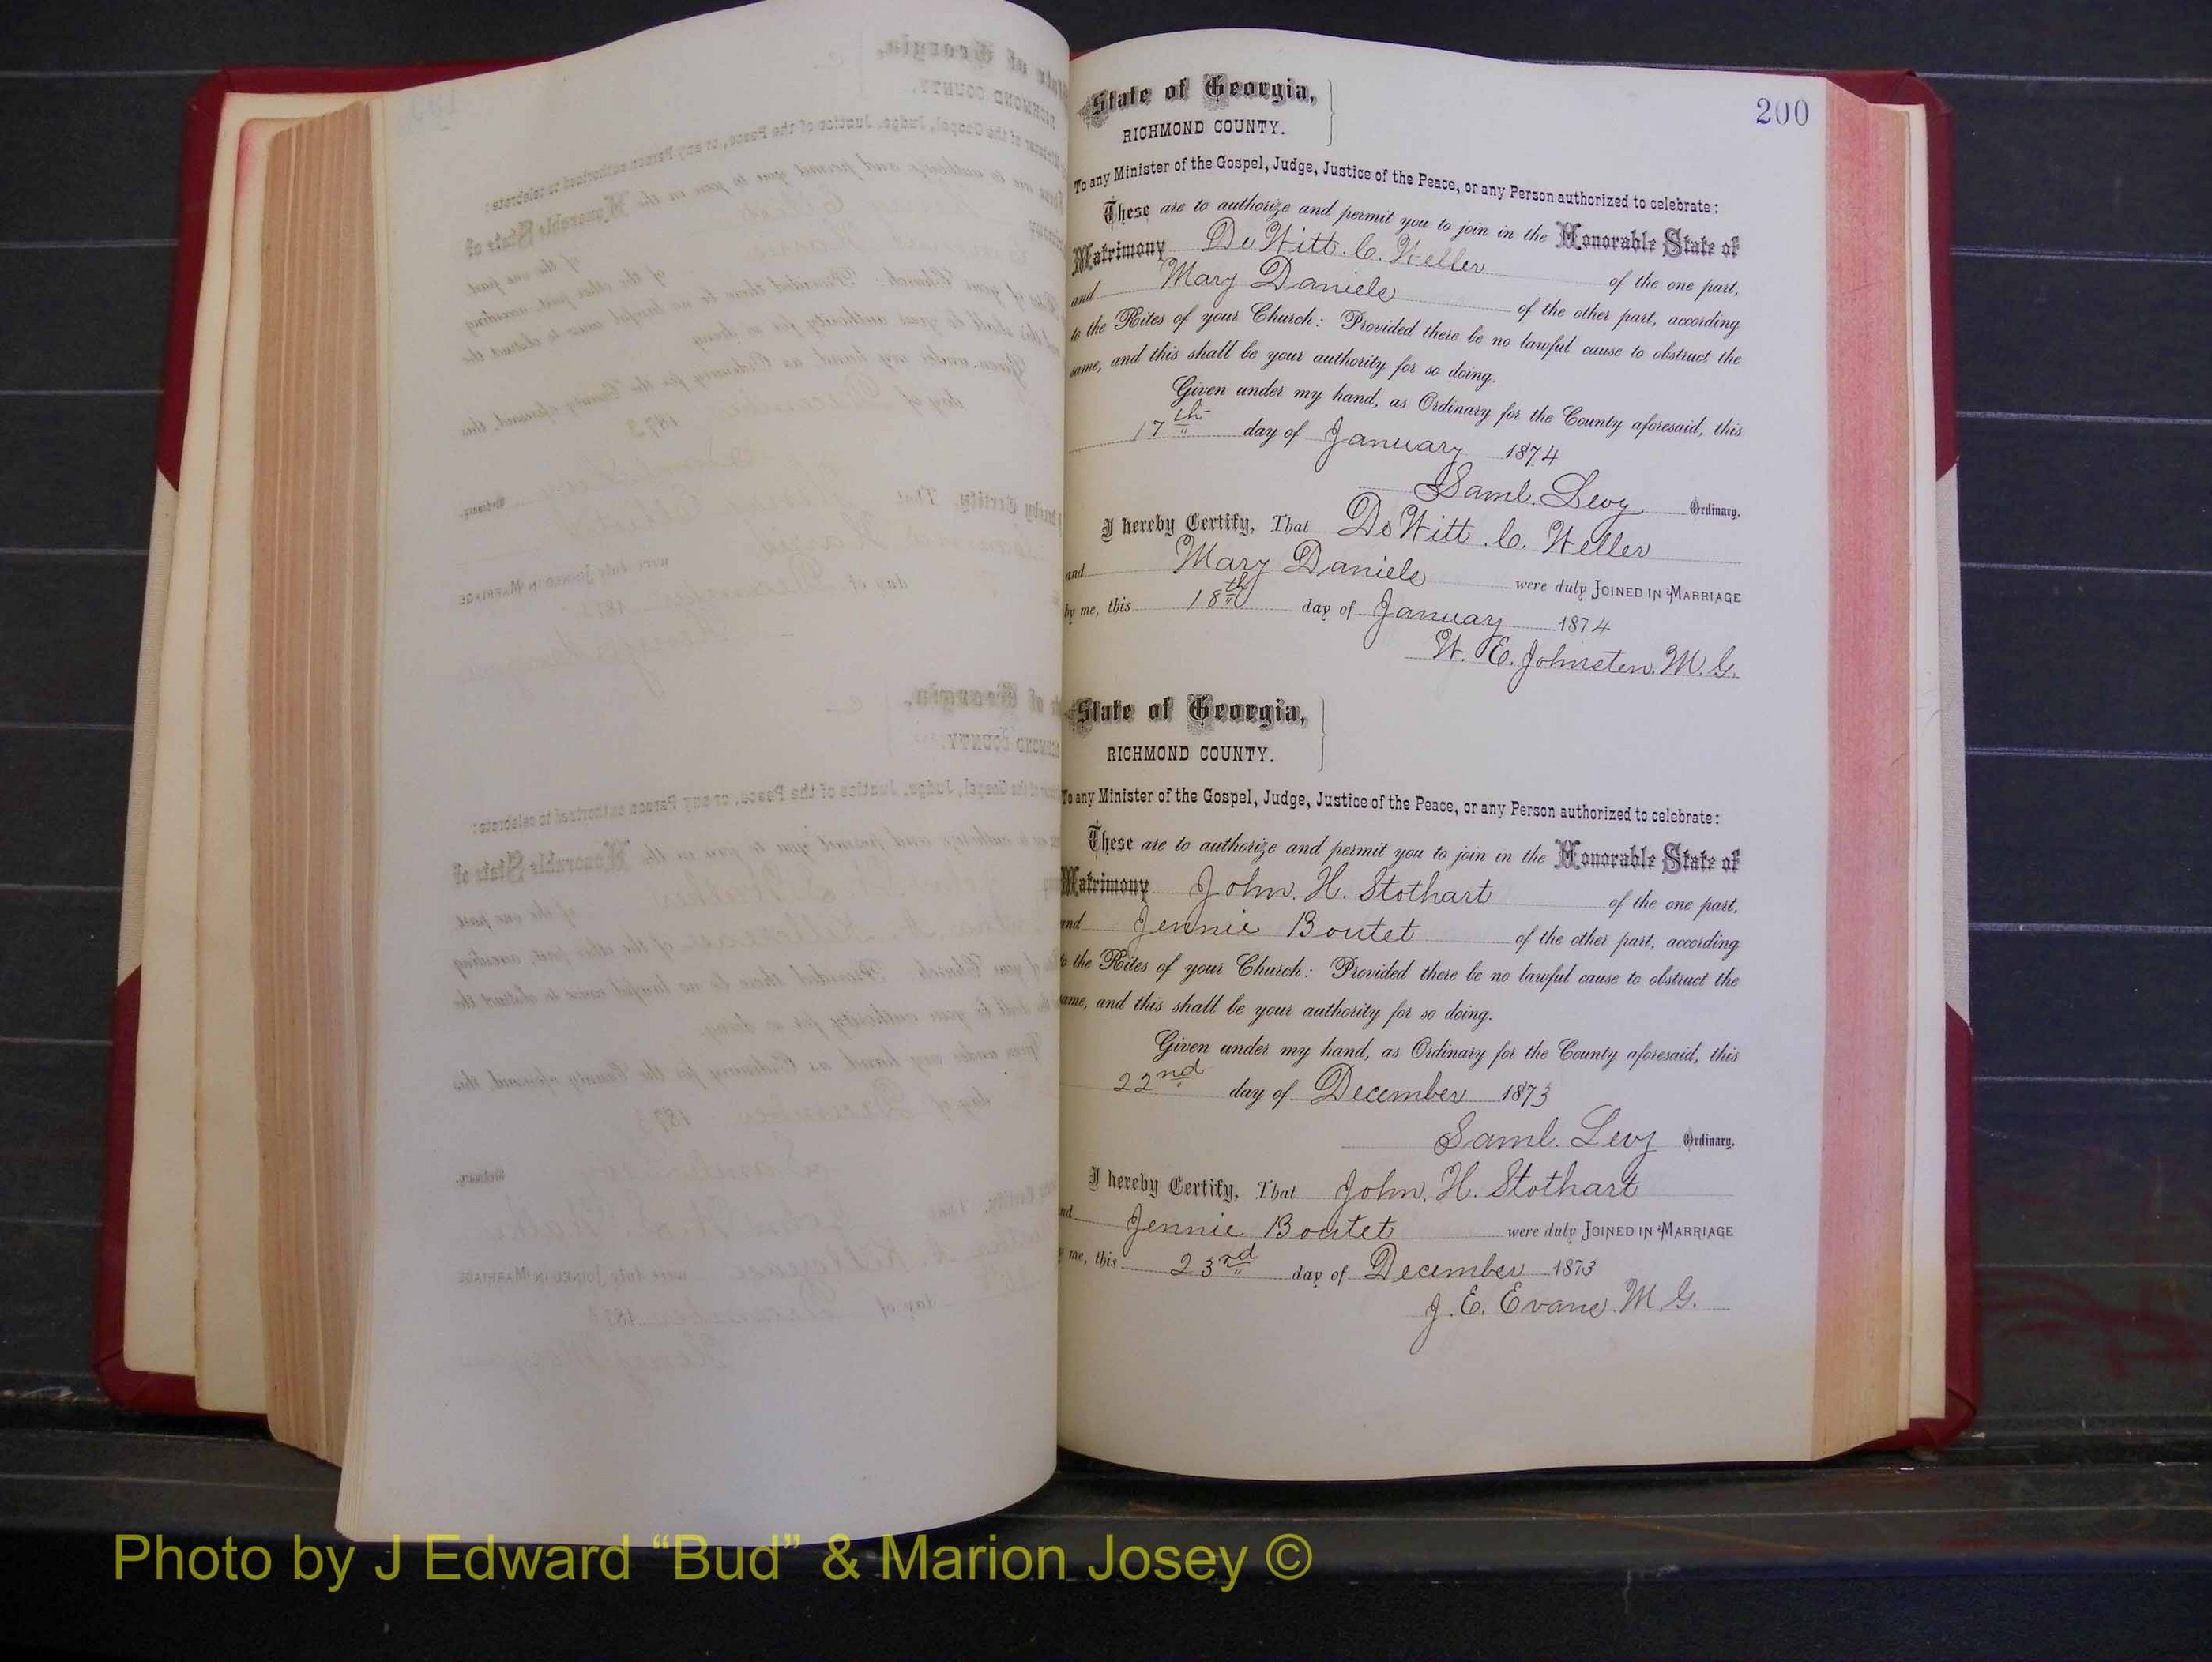 200
State of Georgia,
RICHMOND COUNTY.
To any Minister of the Gospel, Judge, Justice of the Peace, or any Person authorized to celebrate:
These are to authorize and permit you to join in the Honorable State of
Matrimony DeWitt. C. Weller of the one part,
and Mary Daniels of the other part, according
to the Rites of your Church: Provided there be no lawful cause to obstruct the
same, and this shall be your authority for so doing.
Given under my hand, as Ordinary for the County aforesaid, this
17th day of January 1874
Saml. Levy Ordinary.
I hereby Certify, That DeWitt. C. Weller
and Mary Daniels were duly JOINED IN MARRIAGE
by me, this 18th day of January 1874
W. E. Johnsten. M. G.
State of Georgia,
RICHMOND COUNTY.
To any Minister of the Gospel, Judge, Justice of the Peace, or any Person authorized to celebrate:
These are to authorize and permit you to join in the Honorable State of
Matrimony John. H. Stothart of the one part,
and Jennie Boutet of the other part, according
to the Rites of your Church: Provided there be no lawful cause to obstruct the
same, and this shall be your authority for so doing.
Given under my hand, as Ordinary for the County aforesaid, this
22nd day of December 1873
Saml. Levy Ordinary.
I hereby Certify, That John. H. Stothart
and Jennie Boutet were duly JOINED IN MARRIAGE
by me, this 23rd day of December 1873
J. E. Evans. M G.
Photo by J Edward “Bud” & Marion Josey ©